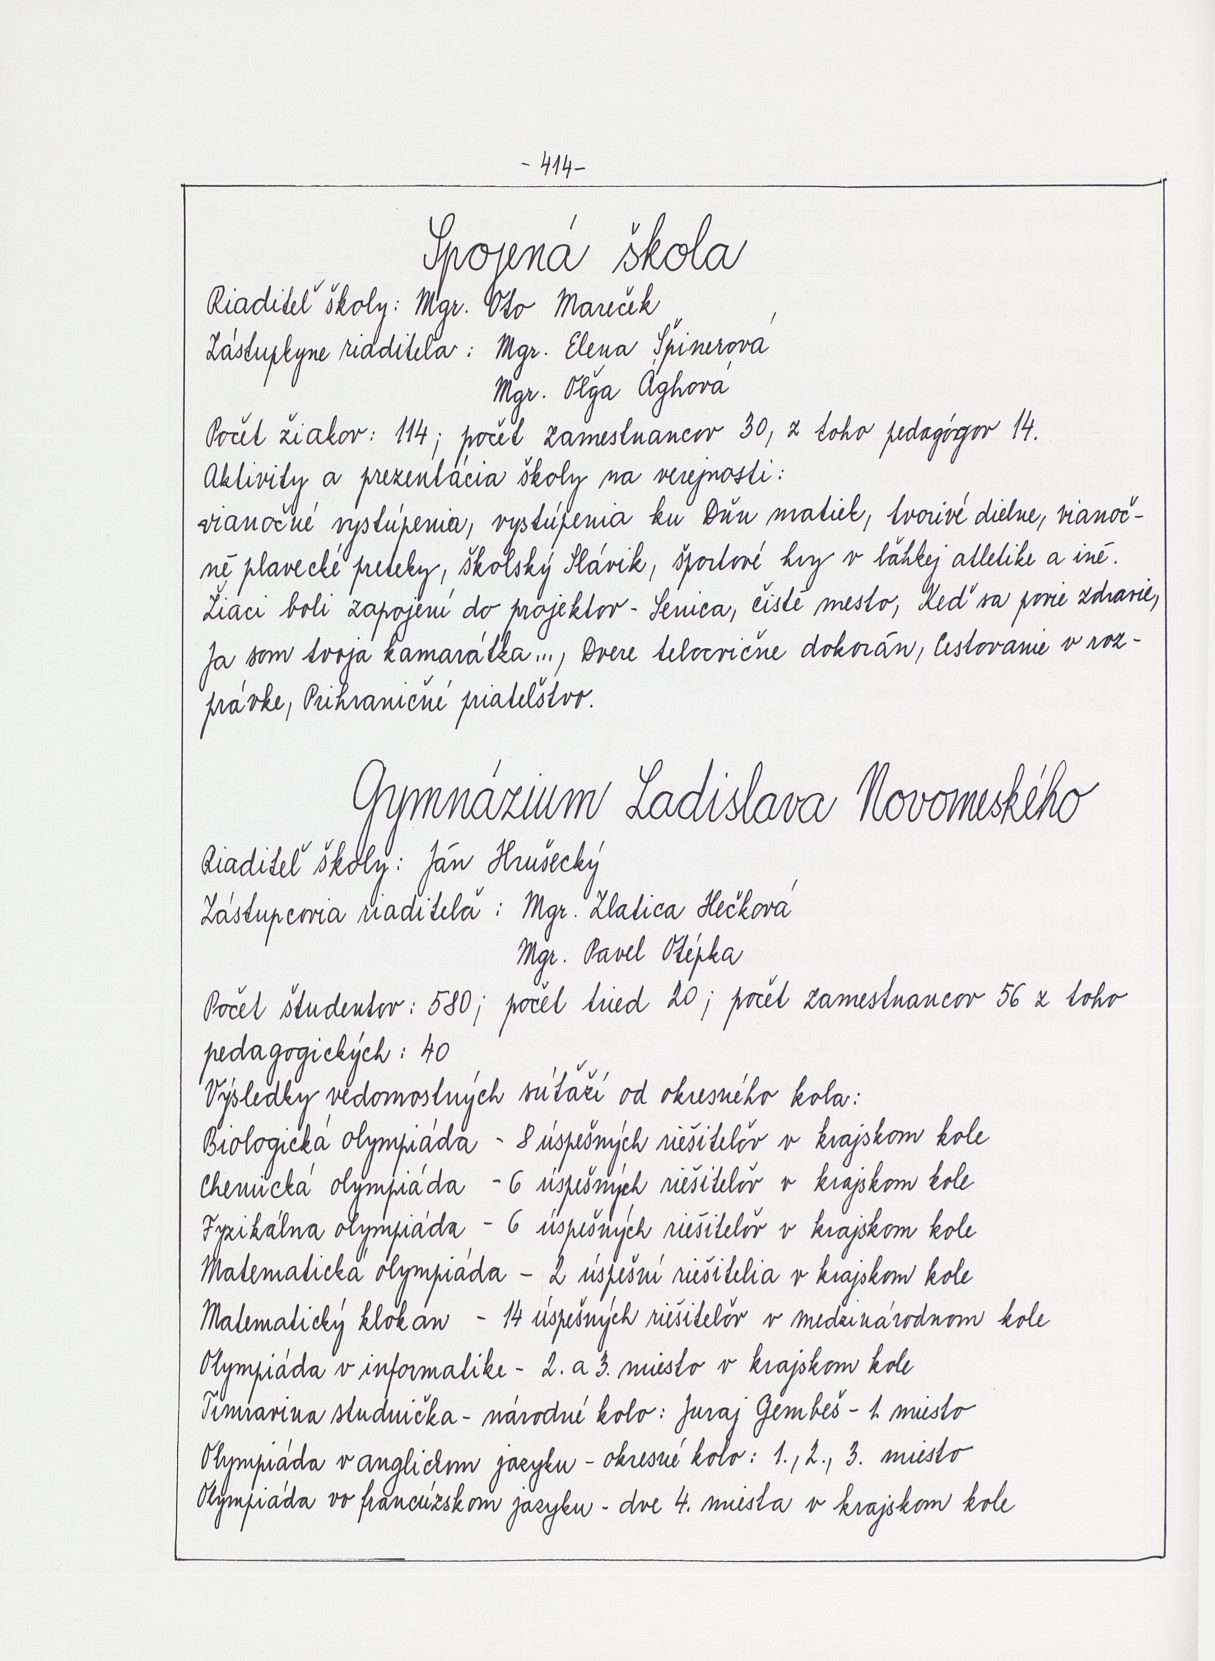 - 414 -
Spojená škola
Riaditeľ školy: Mgr. Oto Mareček
Zástupkyne riaditeľa: Mgr. Elena Špinerová
Mgr. Oľga Ághová
Počet žiakov: 114; počet zamestnancov 30, z toho pedagógov 14.
Aktivity a prezentácia školy na verejnosti:
vianočné vystúpenia, vystúpenia ku Dňu matiek, tvorivé dielne, vianoč-
né plavecké preteky, školský Slávik, športové hry v ľahkej atletike a iné.
Žiaci boli zapojení do projektov - Senica, čisté mesto, Keď sa povie zdravie,
Ja som tvoja kamarátka..., Dvere telocvične dokorán, Cestovanie v roz-
právke, Prihraničné priateľstvo.
Gymnázium Ladislava Novomeského
Riaditeľ školy: Ján Hrušecký
Zástupcovia riaditeľa: Mgr. Zlatica Hečková
Mgr. Pavel Otépka
Počet študentov: 580; počet tried 20; počet zamestnancov 56 z toho
pedagogických: 40
Výsledky vedomostných súťaží od okresného kola:
Biologická olympiáda - 8 úspešných riešiteľov v krajskom kole
Chemická olympiáda - 6 úspešných riešiteľov v krajskom kole
Fyzikálna olympiáda - 6 úspešných riešiteľov v krajskom kole
Matematická olympiáda - 2 úspešní riešitelia v krajskom kole
Matematický klokan - 14 úspešných riešiteľov v medzinárodnom kole
Olympiáda v informatike - 2. a 3. miesto v krajskom kole
Timravina studnička - národné kolo: Juraj Gembeš - 1. miesto
Olympiáda v anglickom jazyku - okresné kolo: 1., 2., 3. miesto
Olympiáda vo francúzskom jazyku - dve 4. miesta v krajskom kole